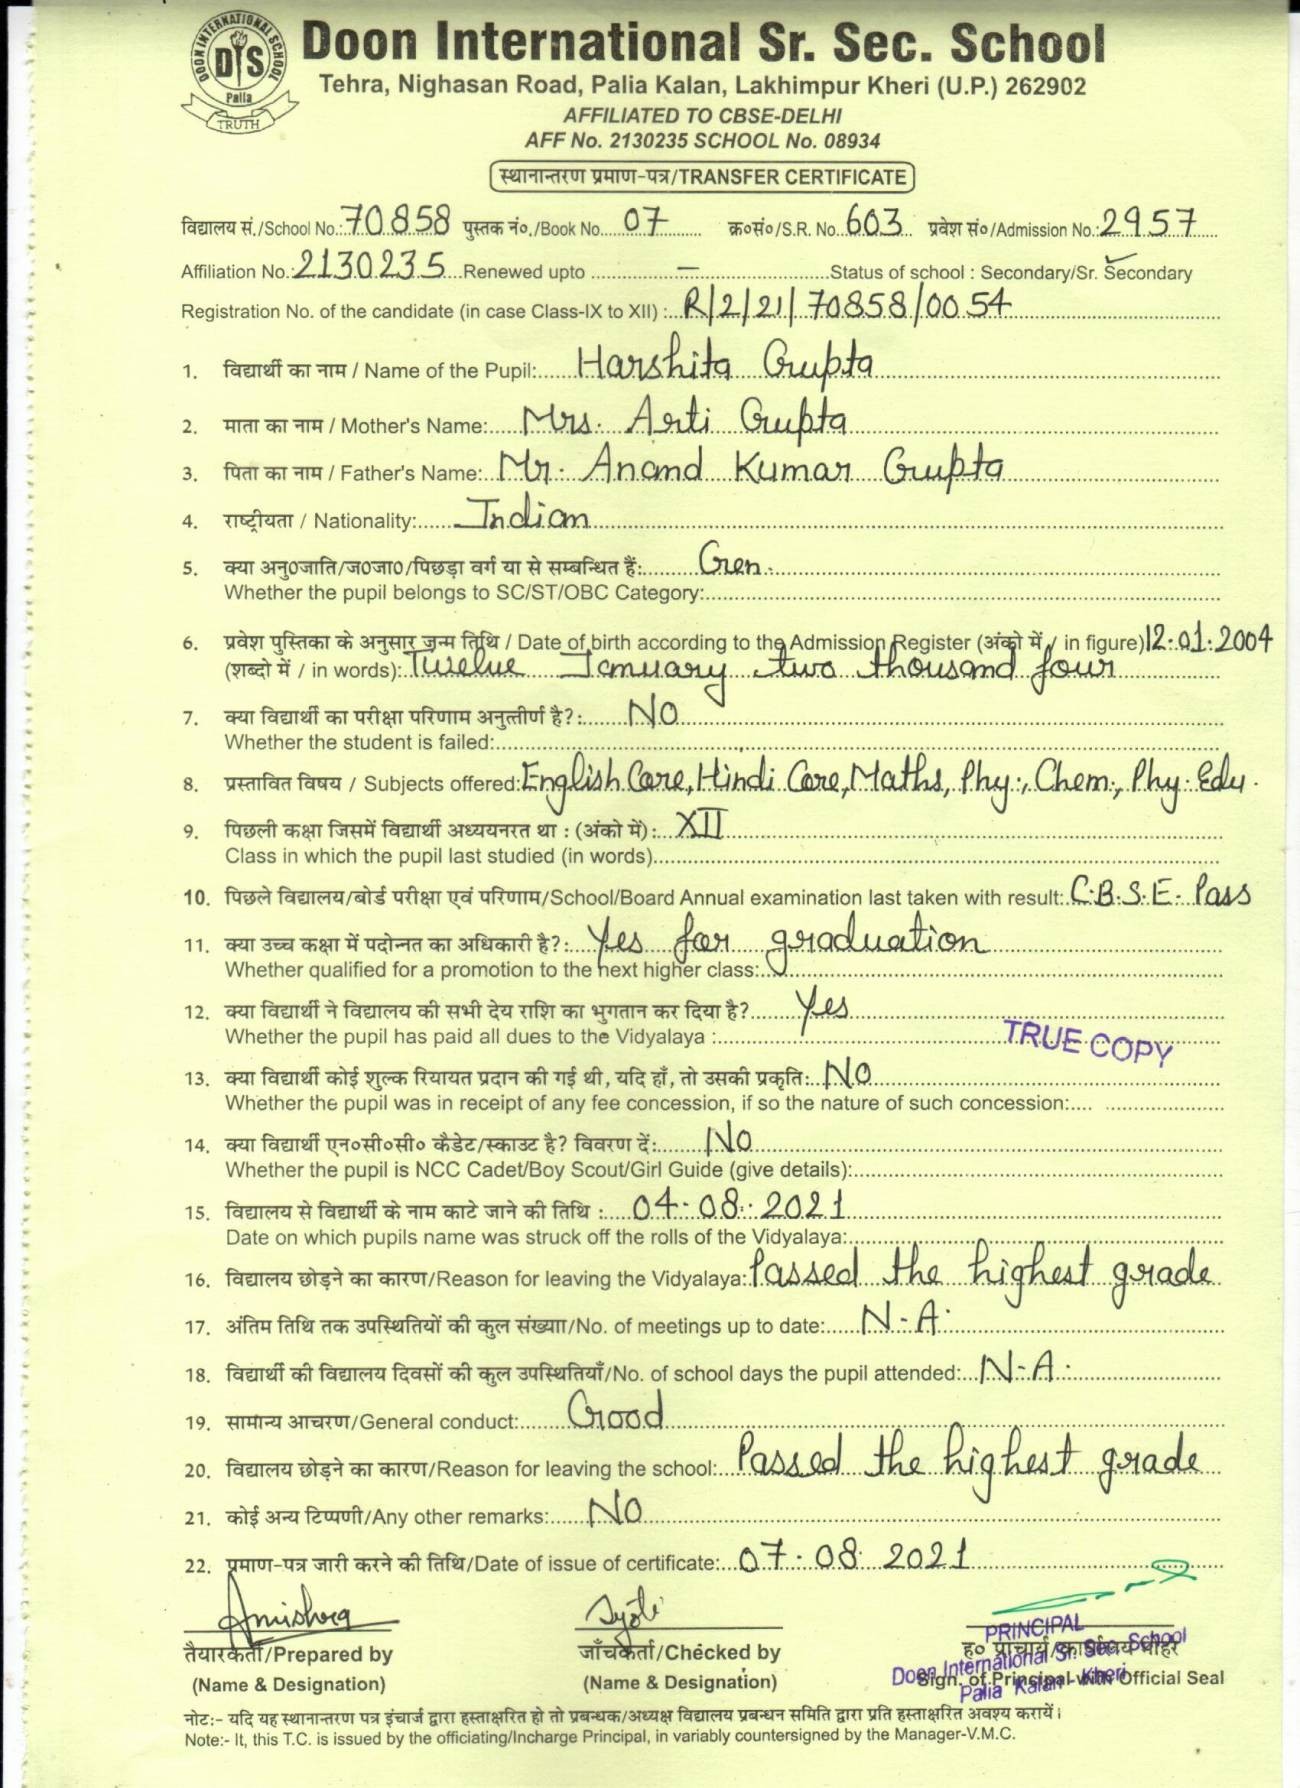 DOON INTERNATIONAL SCHOOL
DIS
Palia
TRUTH
Doon International Sr. Sec. School
Tehra, Nighasan Road, Palia Kalan, Lakhimpur Kheri (U.P.) 262902
AFFILIATED TO CBSE-DELHI
AFF No. 2130235 SCHOOL No. 08934
स्थानान्तरण प्रमाण-पत्र/TRANSFER CERTIFICATE
विद्यालय सं./School No.: 70858 पुस्तक नं०./Book No. 07 क्र०सं०/S.R. No. 603 प्रवेश सं०/Admission No.: 2957
Affiliation No.: 2130235 Renewed upto - Status of school : Secondary/Sr. Secondary
Registration No. of the candidate (in case Class-IX to XII) : R/2/21/70858/0054
1. विद्यार्थी का नाम / Name of the Pupil: Harshita Gupta
2. माता का नाम / Mother's Name: Mrs. Arti Gupta
3. पिता का नाम / Father's Name: Mr. Anand Kumar Gupta
4. राष्ट्रीयता / Nationality: Indian
5. क्या अनु0जाति/ज0जा0/पिछड़ा वर्ग या से सम्बन्धित हैं: Gen.
Whether the pupil belongs to SC/ST/OBC Category:
6. प्रवेश पुस्तिका के अनुसार जन्म तिथि / Date of birth according to the Admission Register (अंको में / in figure) 12.01.2004
(शब्दो में / in words): Twelve January two thousand four
7. क्या विद्यार्थी का परीक्षा परिणाम अनुत्तीर्ण है?: NO
Whether the student is failed:
8. प्रस्तावित विषय / Subjects offered: English Core, Hindi Core, Maths, Phy., Chem., Phy. Edu.
9. पिछली कक्षा जिसमें विद्यार्थी अध्ययनरत था : (अंको में): XII
Class in which the pupil last studied (in words)
10. पिछले विद्यालय/बोर्ड परीक्षा एवं परिणाम/School/Board Annual examination last taken with result: C.B.S.E. Pass
11. क्या उच्च कक्षा में पदोन्नत का अधिकारी है?: Yes for graduation
Whether qualified for a promotion to the next higher class:
12. क्या विद्यार्थी ने विद्यालय की सभी देय राशि का भुगतान कर दिया है? Yes
Whether the pupil has paid all dues to the Vidyalaya :
TRUE COPY
13. क्या विद्यार्थी कोई शुल्क रियायत प्रदान की गई थी, यदि हाँ, तो उसकी प्रकृति: NO
Whether the pupil was in receipt of any fee concession, if so the nature of such concession:
14. क्या विद्यार्थी एन०सी०सी० कैडेट/स्काउट है? विवरण दें: NO
Whether the pupil is NCC Cadet/Boy Scout/Girl Guide (give details):
15. विद्यालय से विद्यार्थी के नाम काटे जाने की तिथि : 04.08.2021
Date on which pupils name was struck off the rolls of the Vidyalaya:
16. विद्यालय छोड़ने का कारण/Reason for leaving the Vidyalaya: Passed the highest grade
17. अंतिम तिथि तक उपस्थितियों की कुल संख्याा/No. of meetings up to date: N.A.
18. विद्यार्थी की विद्यालय दिवसों की कुल उपस्थितियाँ/No. of school days the pupil attended: N.A.
19. सामान्य आचरण/General conduct: Good
20. विद्यालय छोड़ने का कारण/Reason for leaving the school: Passed the highest grade
21. कोई अन्य टिप्पणी/Any other remarks: NO
22. प्रमाण-पत्र जारी करने की तिथि/Date of issue of certificate: 07.08.2021
Jyoti
PRINCIPAL
तैयारकर्ता/Prepared by जाँचकर्ता/Checked by ह० प्राचार्य
Doon International Sr. Sec. School
(Name & Designation) (Name & Designation) Sign. of Principal with Official Seal
Palia Kalan - Kheri
नोट:- यदि यह स्थानान्तरण पत्र इंचार्ज द्वारा हस्ताक्षरित हो तो प्रबन्धक/अध्यक्ष विद्यालय प्रबन्धन समिति द्वारा प्रति हस्ताक्षरित अवश्य करायें।
Note:- It, this T.C. is issued by the officiating/Incharge Principal, in variably countersigned by the Manager-V.M.C.